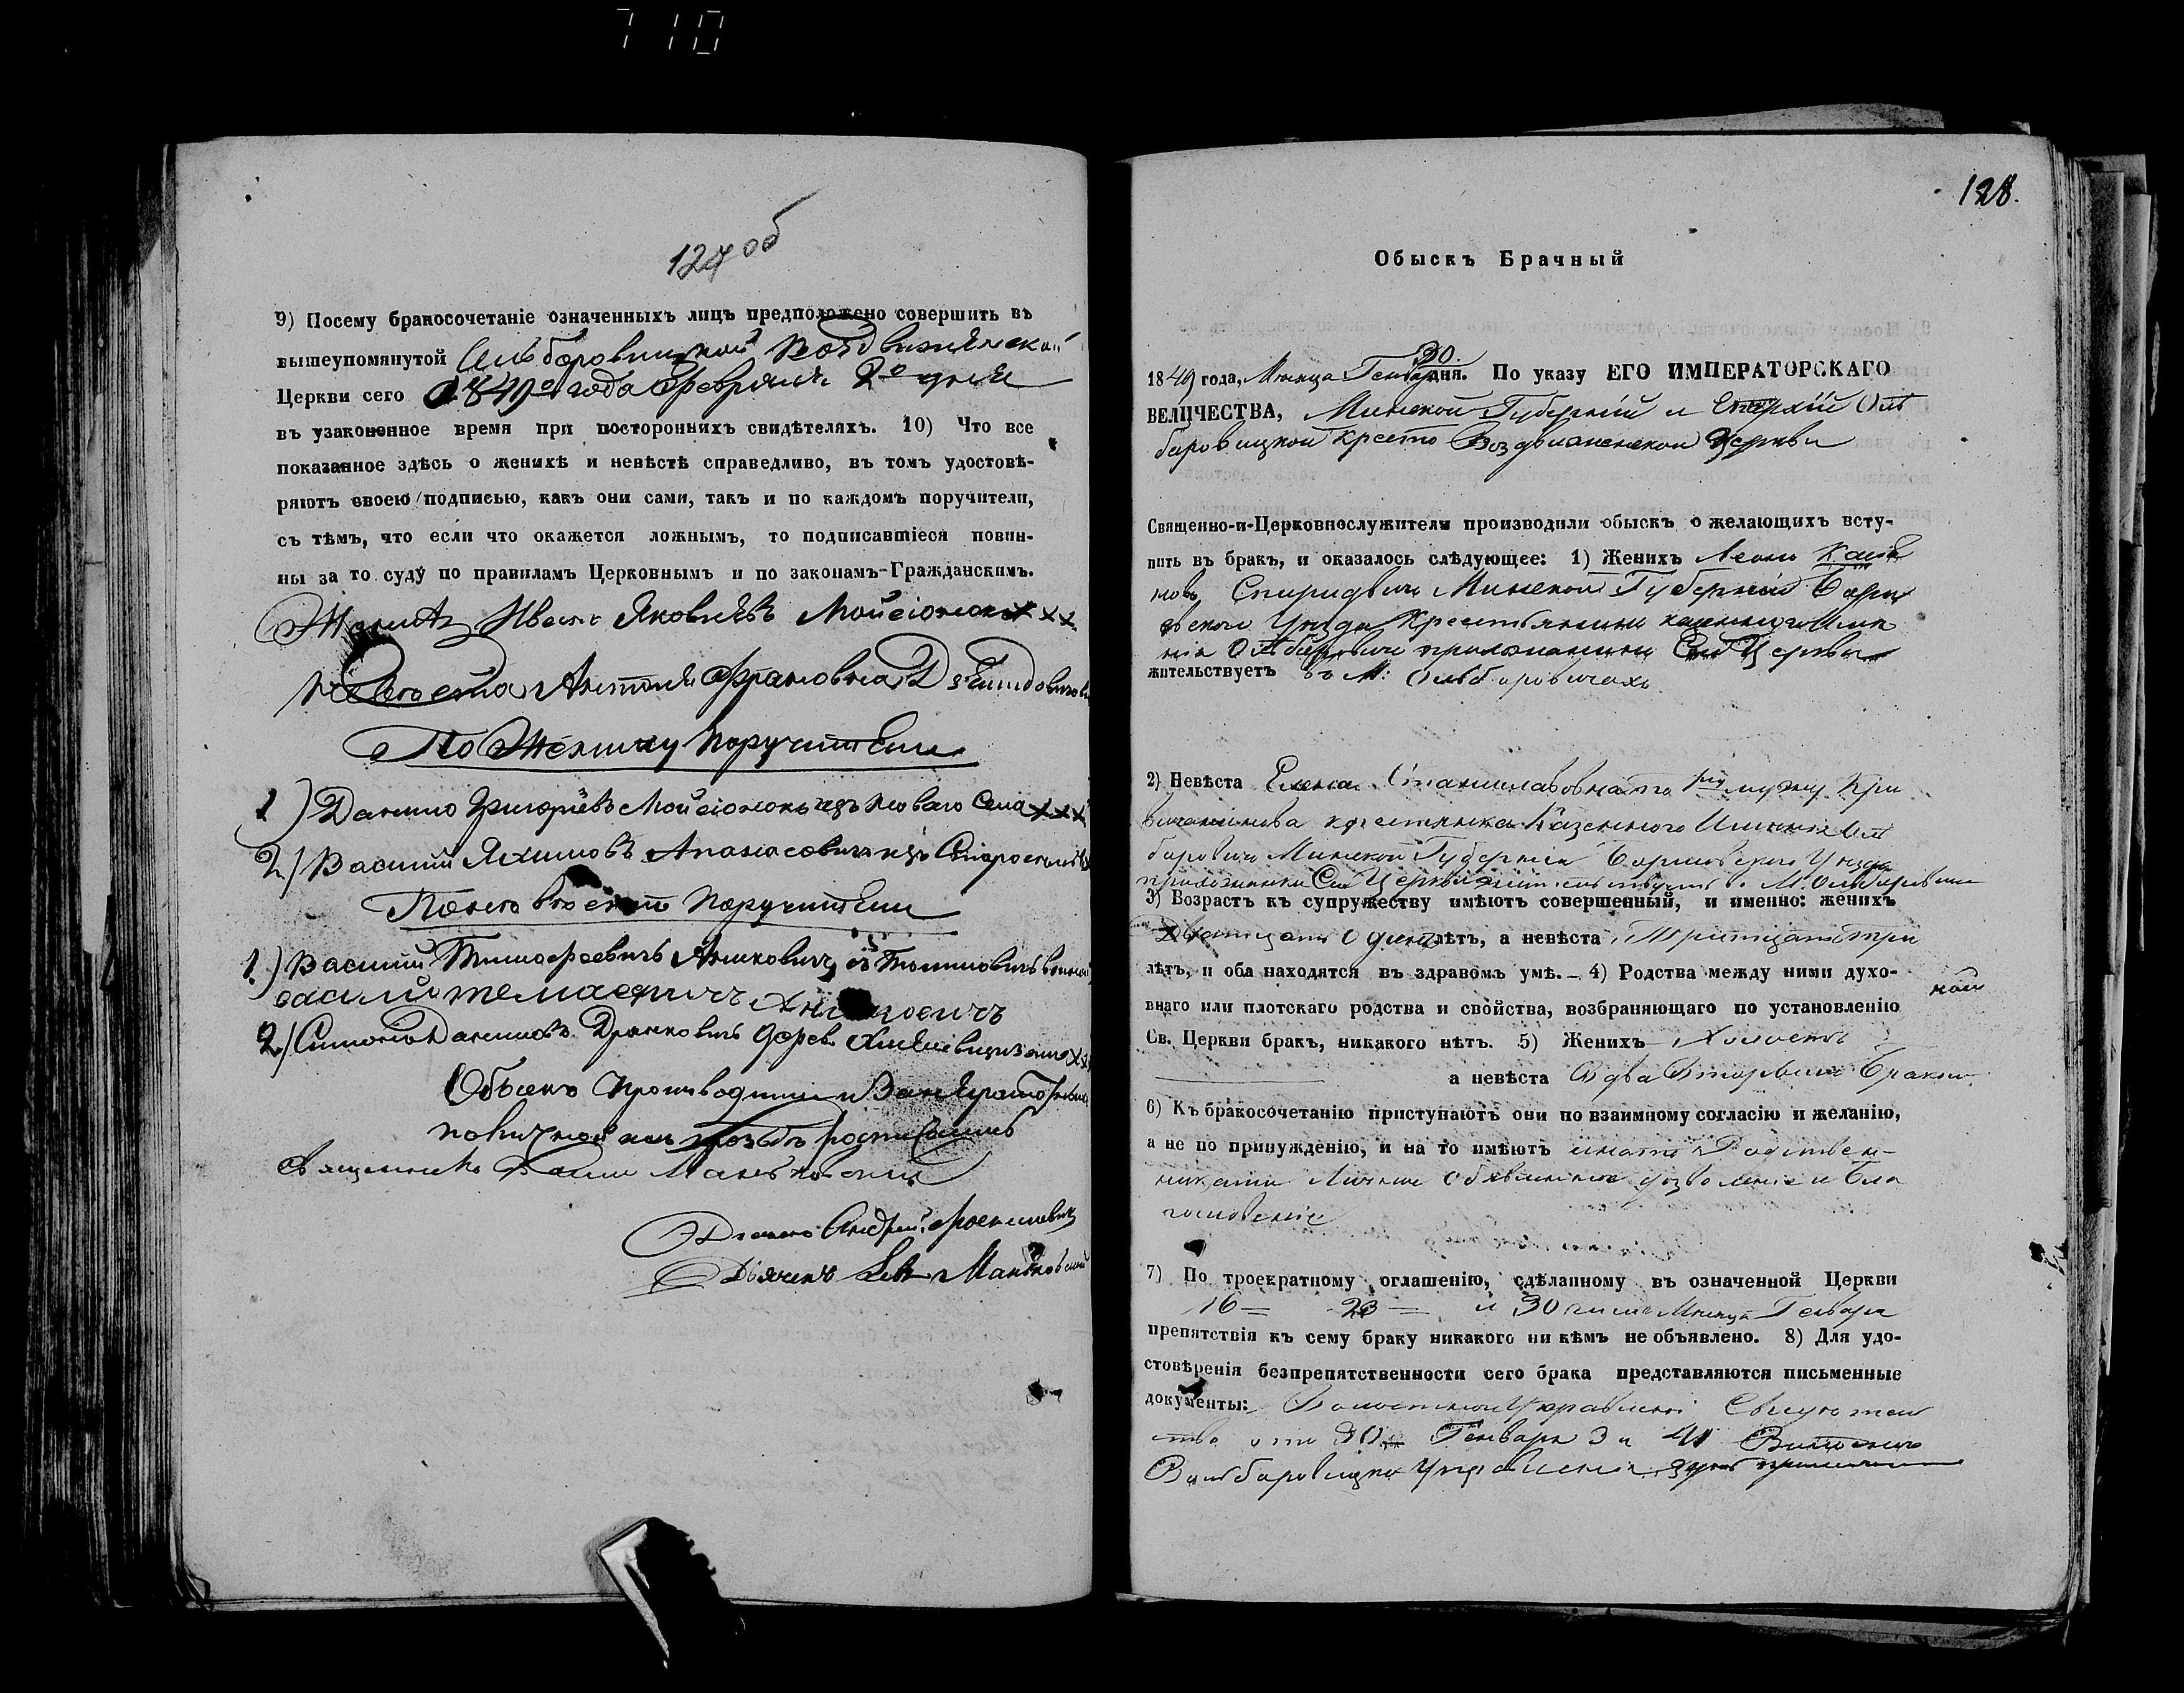 710
124 об
9) Посему бракосочетаніе означенныхъ лицъ предположено совершить въ
вышеупомянутой Ольборовицкой Воздвиженской
Церкви сего 1849го года Февраля 2го дня
въ узаконенное время при постороннихъ свидѣтеляхъ. 10) Что все
показанное здѣсь о женихѣ и невѣстѣ справедливо, въ томъ удостовѣ-
ряютъ своею подписью, какъ они сами, такъ и по каждомъ поручители,
съ тѣмъ, что если что окажется ложнымъ, то подписавшіеся повин-
ны за то суду по правиламъ Церковнымъ и по законамъ-Гражданскимъ.
Женихъ Иванъ Яковлевъ Мойсіонокъ ххх
Невѣста Антоля
По Жениху Поручители
1) Данило Григоріевъ Мойсіонокъ изъ Новаго Села ххх
2) Василій Якимовъ изъ
По невѣстѣ Поручители
1.) Василій Тимофеевичъ Аникович
2/ Симонъ Даниловъ дерев.
Обыскъ Производили и
Священникъ Маньковскій
Андрей
Дьячекъ Лев Маньковскій
128.
Обыскъ Брачный
30.
1849 года, Мѣсяца Генваря дня. По указу ЕГО ИМПЕРАТОРСКАГО
ВЕЛИЧЕСТВА, Минской Губерніи и Епархіи Оль
боровицкой Кресто Воздвиженской Церкви
Священно-и-Церковнослужители производили обыскъ о желающихъ всту-
пить въ бракъ, и оказалось слѣдующее: 1) Женихъ Леонъ
Спиридвичъ Минской Губерніи Бори
вского Уѣзда Крестьянинъ казеннаго Имѣ
нія Ольборовичъ прихожанинъ Сей Церкви
жительствуетъ въ М: Ольборовичахъ
2) Невѣста Елена Станиславовна по 1му мужу Кри
крестьянка Казенного Имѣнія Оль
боровичъ Минской Губерніи Борисовского Уѣзда
прихожанка Сей Церкви жительствуетъ въ М. Ольборовичах
3) Возрастъ къ супружеству имѣютъ совершенный, и именно: женихъ
Двадцать Одинъ лѣтъ, а невѣста Тритцать три
лѣтъ, и оба находятся въ здравомъ умѣ. — 4) Родства между ними духо-
внаго или плотскаго родства и свойства, возбраняющаго по установленію
Св. Церкви бракъ, никакого нѣтъ. 5) Женихъ Холостъ
а невѣста Вдова Вторымъ Бракомъ
6) Къ бракосочетанію приступаютъ они по взаимному согласію и желанію,
а не по принужденію, и на то имѣютъ Родствен-
никами Лично Объявленное дозволеніе и Бла
гословеніе
7) По троекратному оглашенію, сдѣланному въ означенной Церкви
16 = 23 = и 30 числа Мѣсяца Генваря
препятствія къ сему браку никакого ни кѣмъ не объявлено. 8) Для удо-
стовѣренія безпрепятственности сего брака представляются письменные
документы: Волостного Управленія Свидетель
ство отъ 30 Генваря За 41